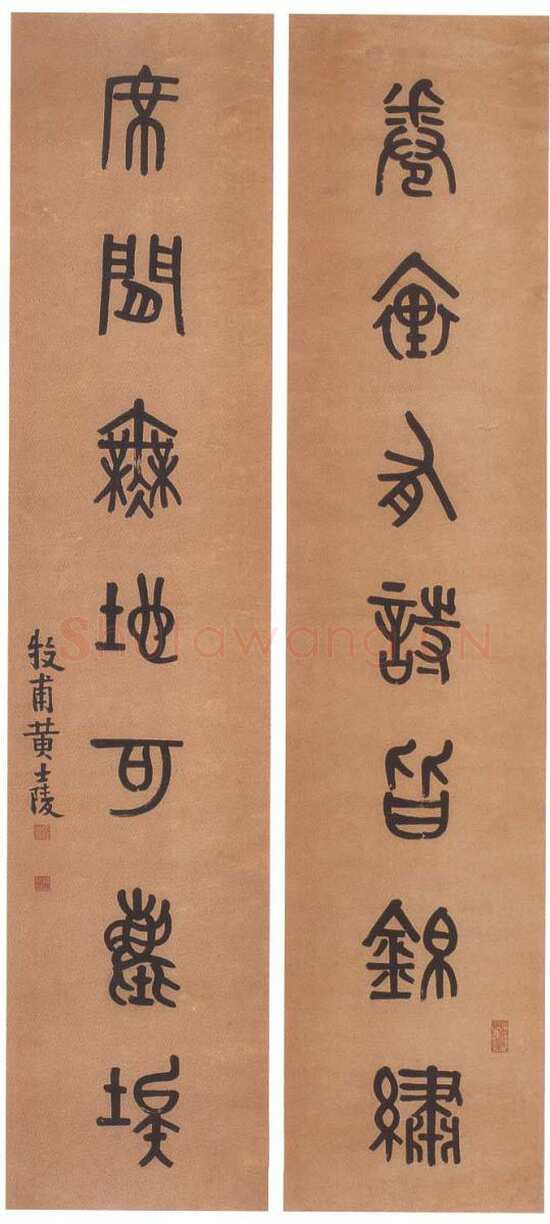 卷有詩皆錦繡
席間無地可塵埃
牧甫黄士陵
Shufawang.CN